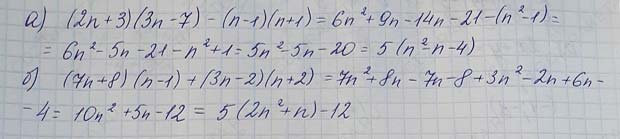 а) (2n+3)(3n-7)-(n-1)(n+1)=6n²+9n-14n-21-(n²-1)=
=6n²-5n-21-n²+1=5n²-5n-20=5(n²-n-4)
б) (7n+8)(n-1)+(3n-2)(n+2)=7n²+8n-7n-8+3n²-2n+6n-
-4=10n²+5n-12=5(2n²+n)-12